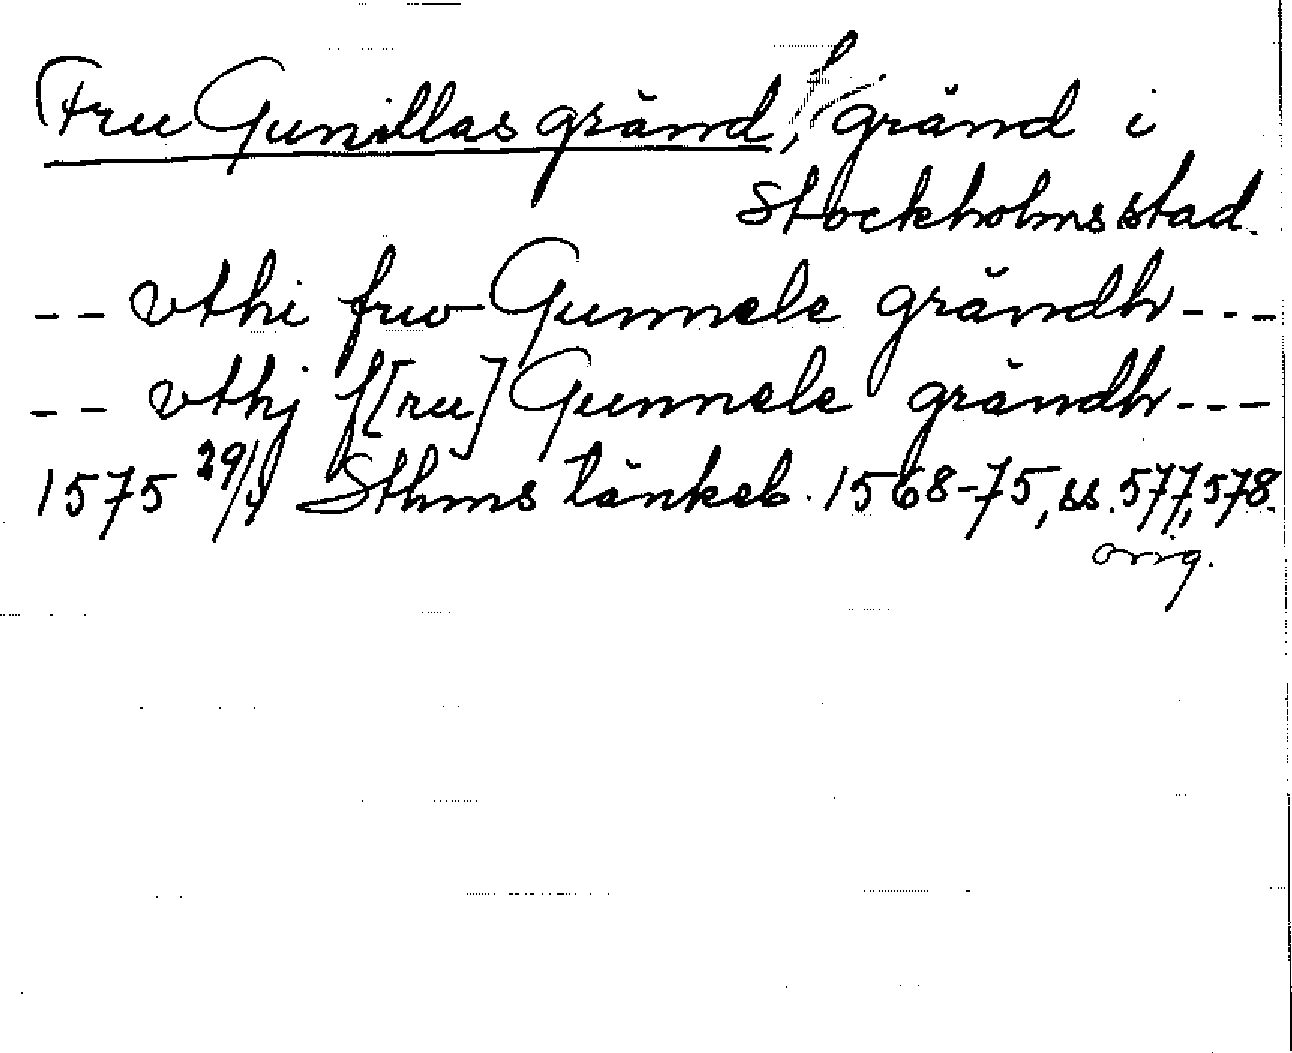 Fru Gunillas gränd, f gränd i
Stockholms stad.
-- vthi frw Gunnele grändh ---
-- vthj f[ru] Gunnele grändh ---
1575 Sthms tänkeb. 1568-75, ss. 577, 578.
orig.